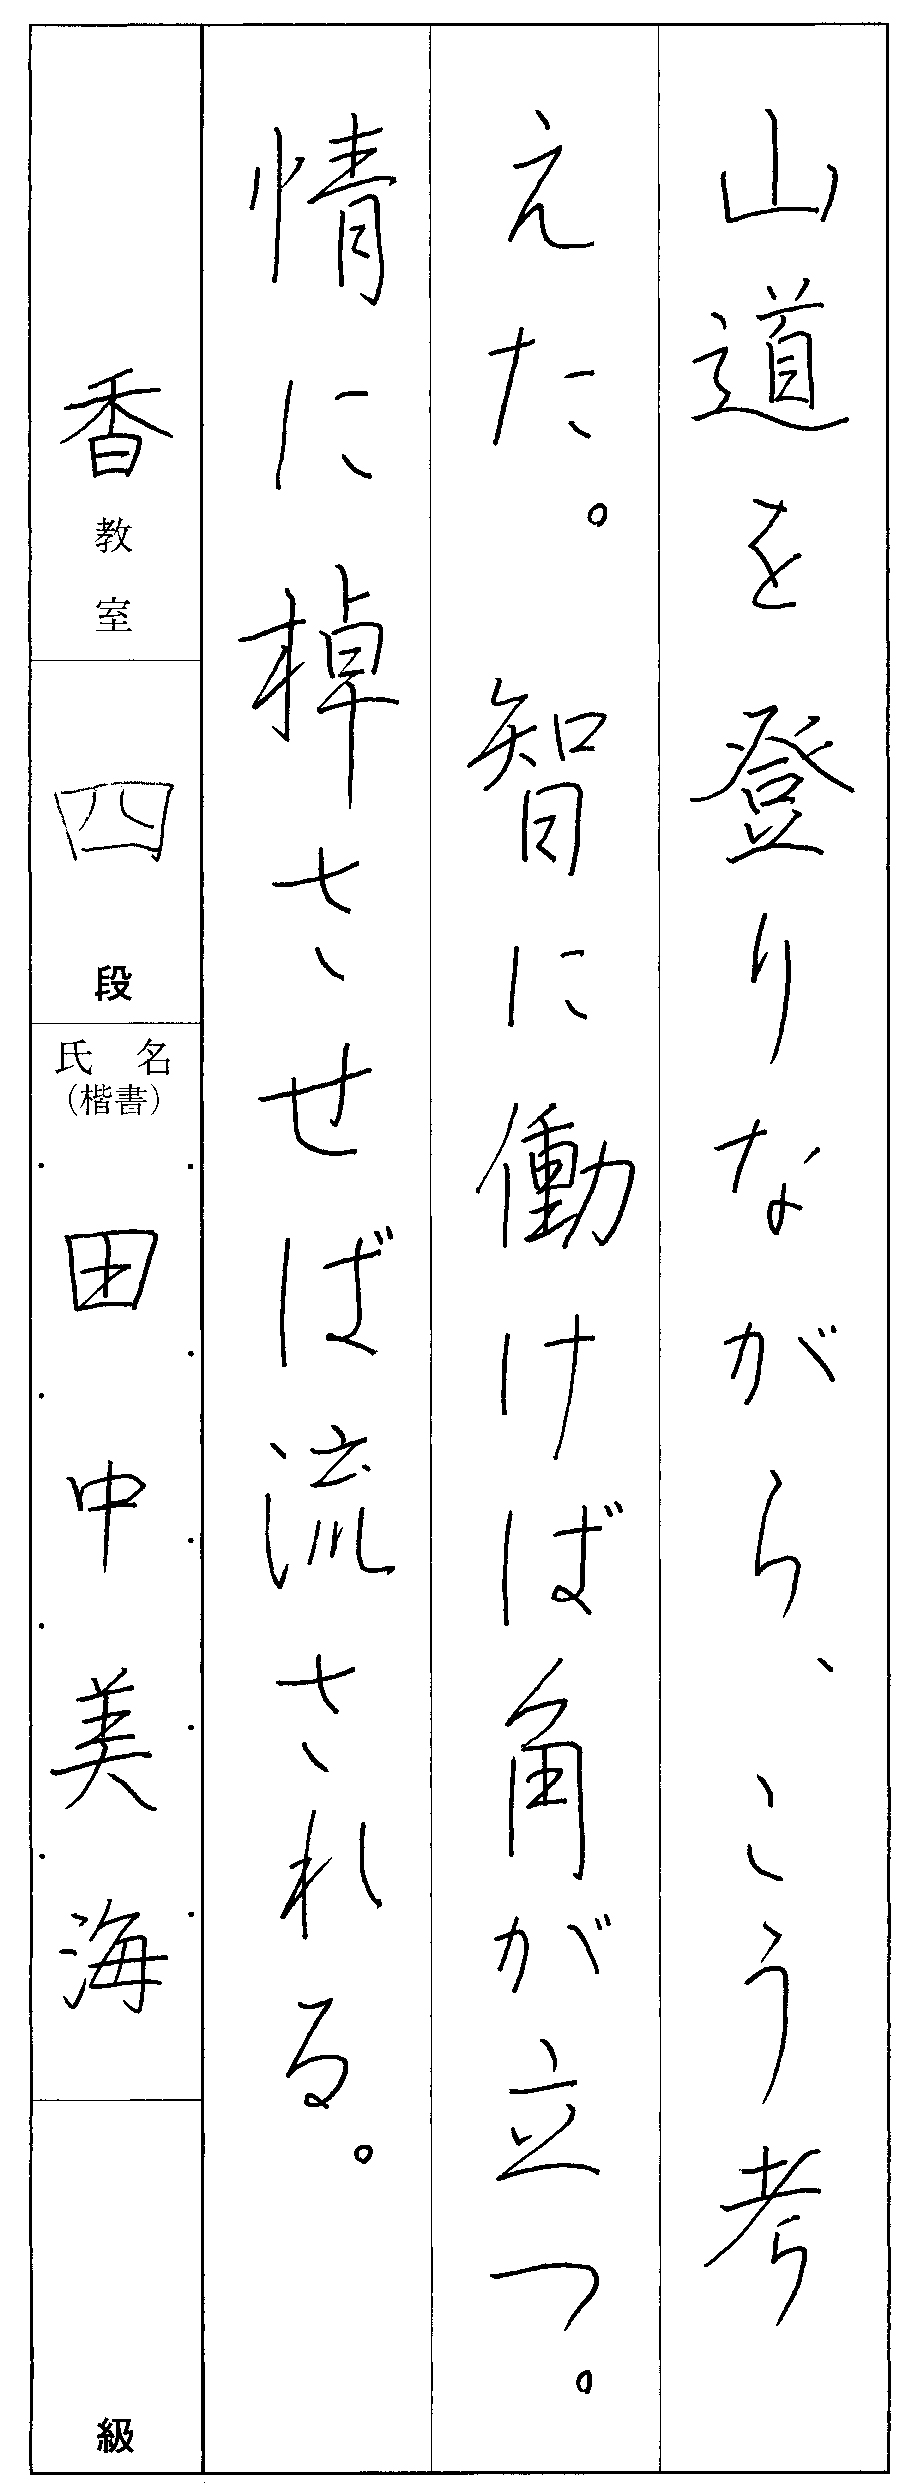 山道を登りながら、こう考
えた。智に働けば角が立つ。
情に棹させば流される。
香教室
四段
氏名
(楷書)
田中美海
級